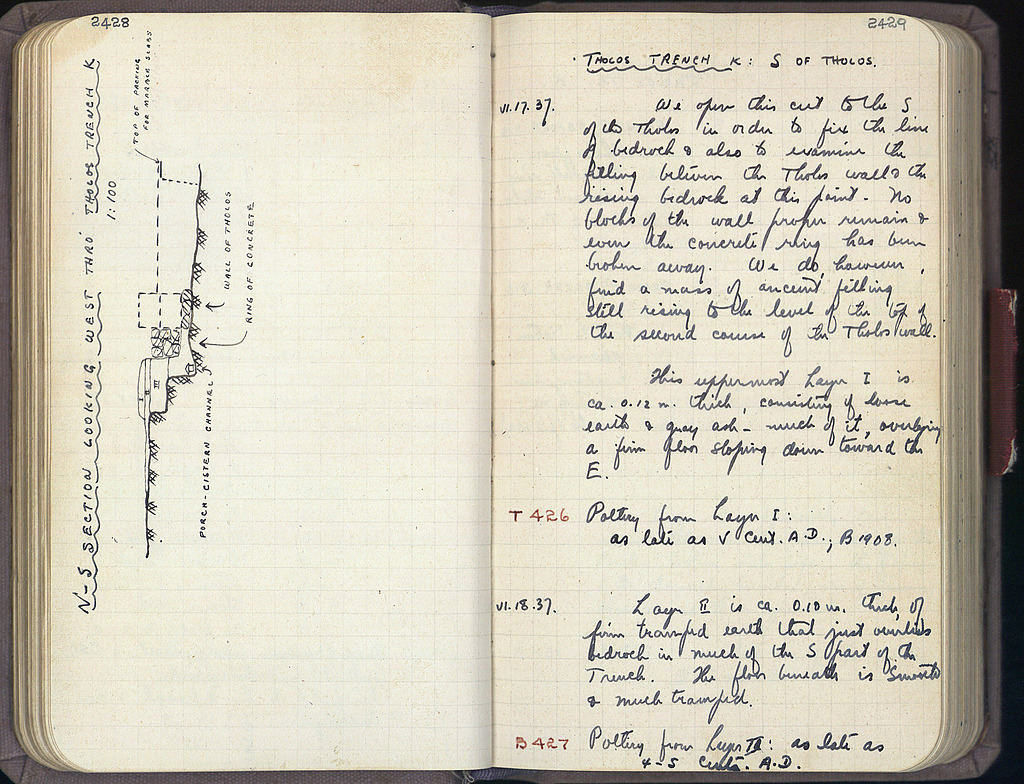 2428
N-S SECTION LOOKING WEST THRO' THOLOS TRENCH K
1:100
TOP OF PACKING
FOR MARBLE SLABS
WALL OF THOLOS
RING OF CONCRETE
PORCH-CISTERN CHANNEL
III
2429
THOLOS TRENCH K: S OF THOLOS.
VI.17.37. We open this cut to the S
of the Tholos in order to fix the line
of bedrock & also to examine the
filling between the Tholos wall & the
rising bedrock at this point. No
blocks of the wall proper remain &
even the concrete ring has been
broken away. We do, however,
find a mass of ancient filling
still rising to the level of the top of
the second course of the Tholos wall.
This uppermost Layer I is
ca. 0.12 m. thick, consisting of loose
earth & gray ash - much of it, overlying
a firm floor sloping down toward the
E.
T 426 Pottery from Layer I:
as late as V Cent. A.D.; B 1908.
VI.18.37. Layer II is ca. 0.10 m. thick, of
firm tramped earth that just overlies
bedrock in much of the S part of the
Trench. The floor beneath is smooth
& much tramped.
B 427 Pottery from Layer II: as late as
4-5 Cents. A.D.